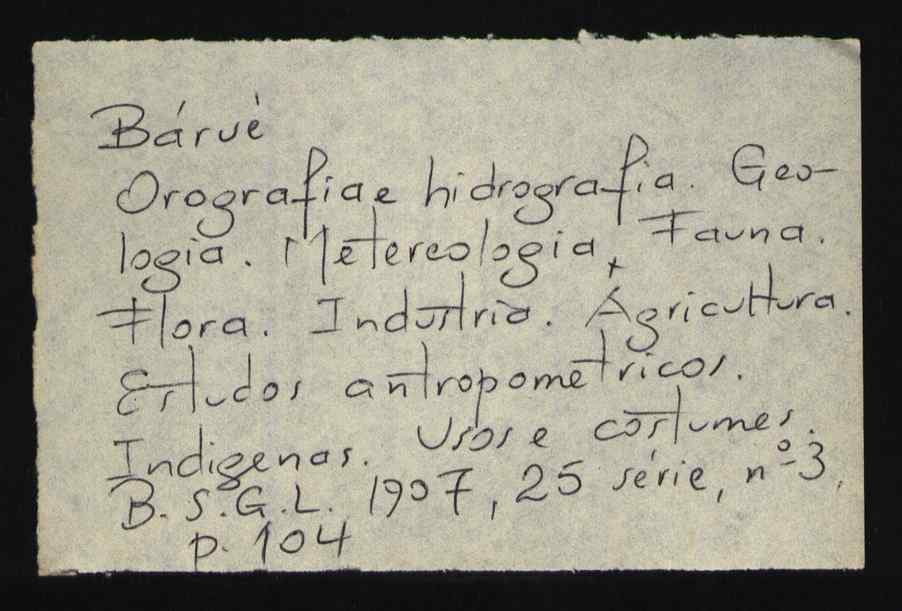 Bárvè
Orografia e hidrografia. Geo-
logia. Metereologia, Fauna.
Flora. Industria. Agricultura.
Estudos antropometricos.
Indigenas. Usos e costumes.
B.S.G.L. 1907, 25 série, nº 3,
p. 104